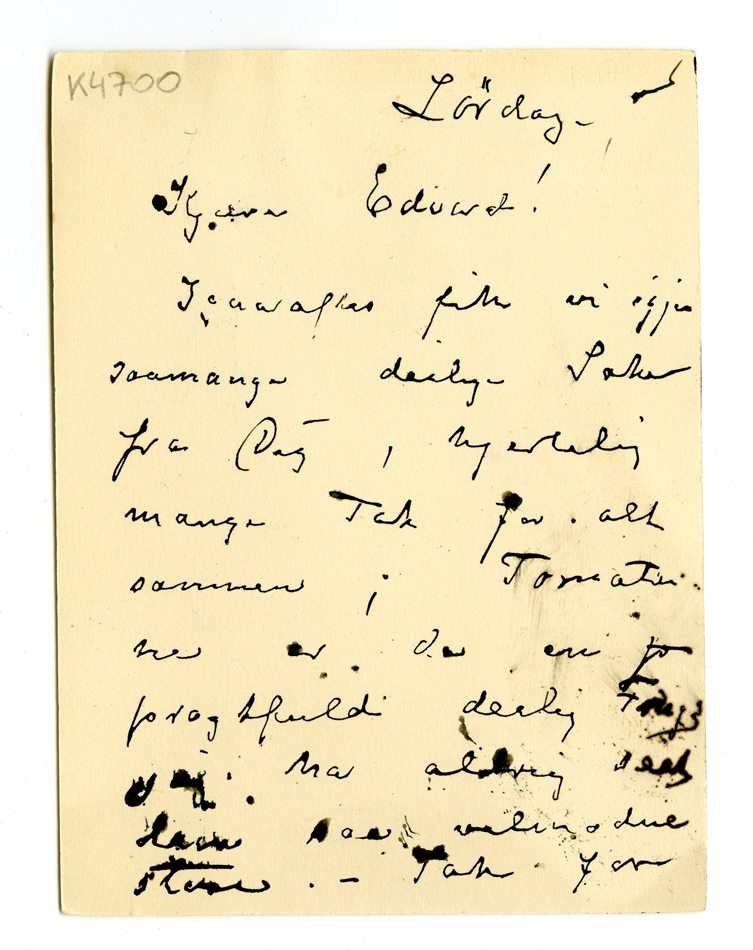 K4700
Lördag –
Kjære Edvard!
Igaaraftes fik vi igjen
saamange deilige Saker
fra Dig, hjertelig
mange Tak for alt
sammen; Tomater
ne er da en
pragtfuld deilig Frugt
har aldrig seet
dem saa velmodne
store. – Tak for